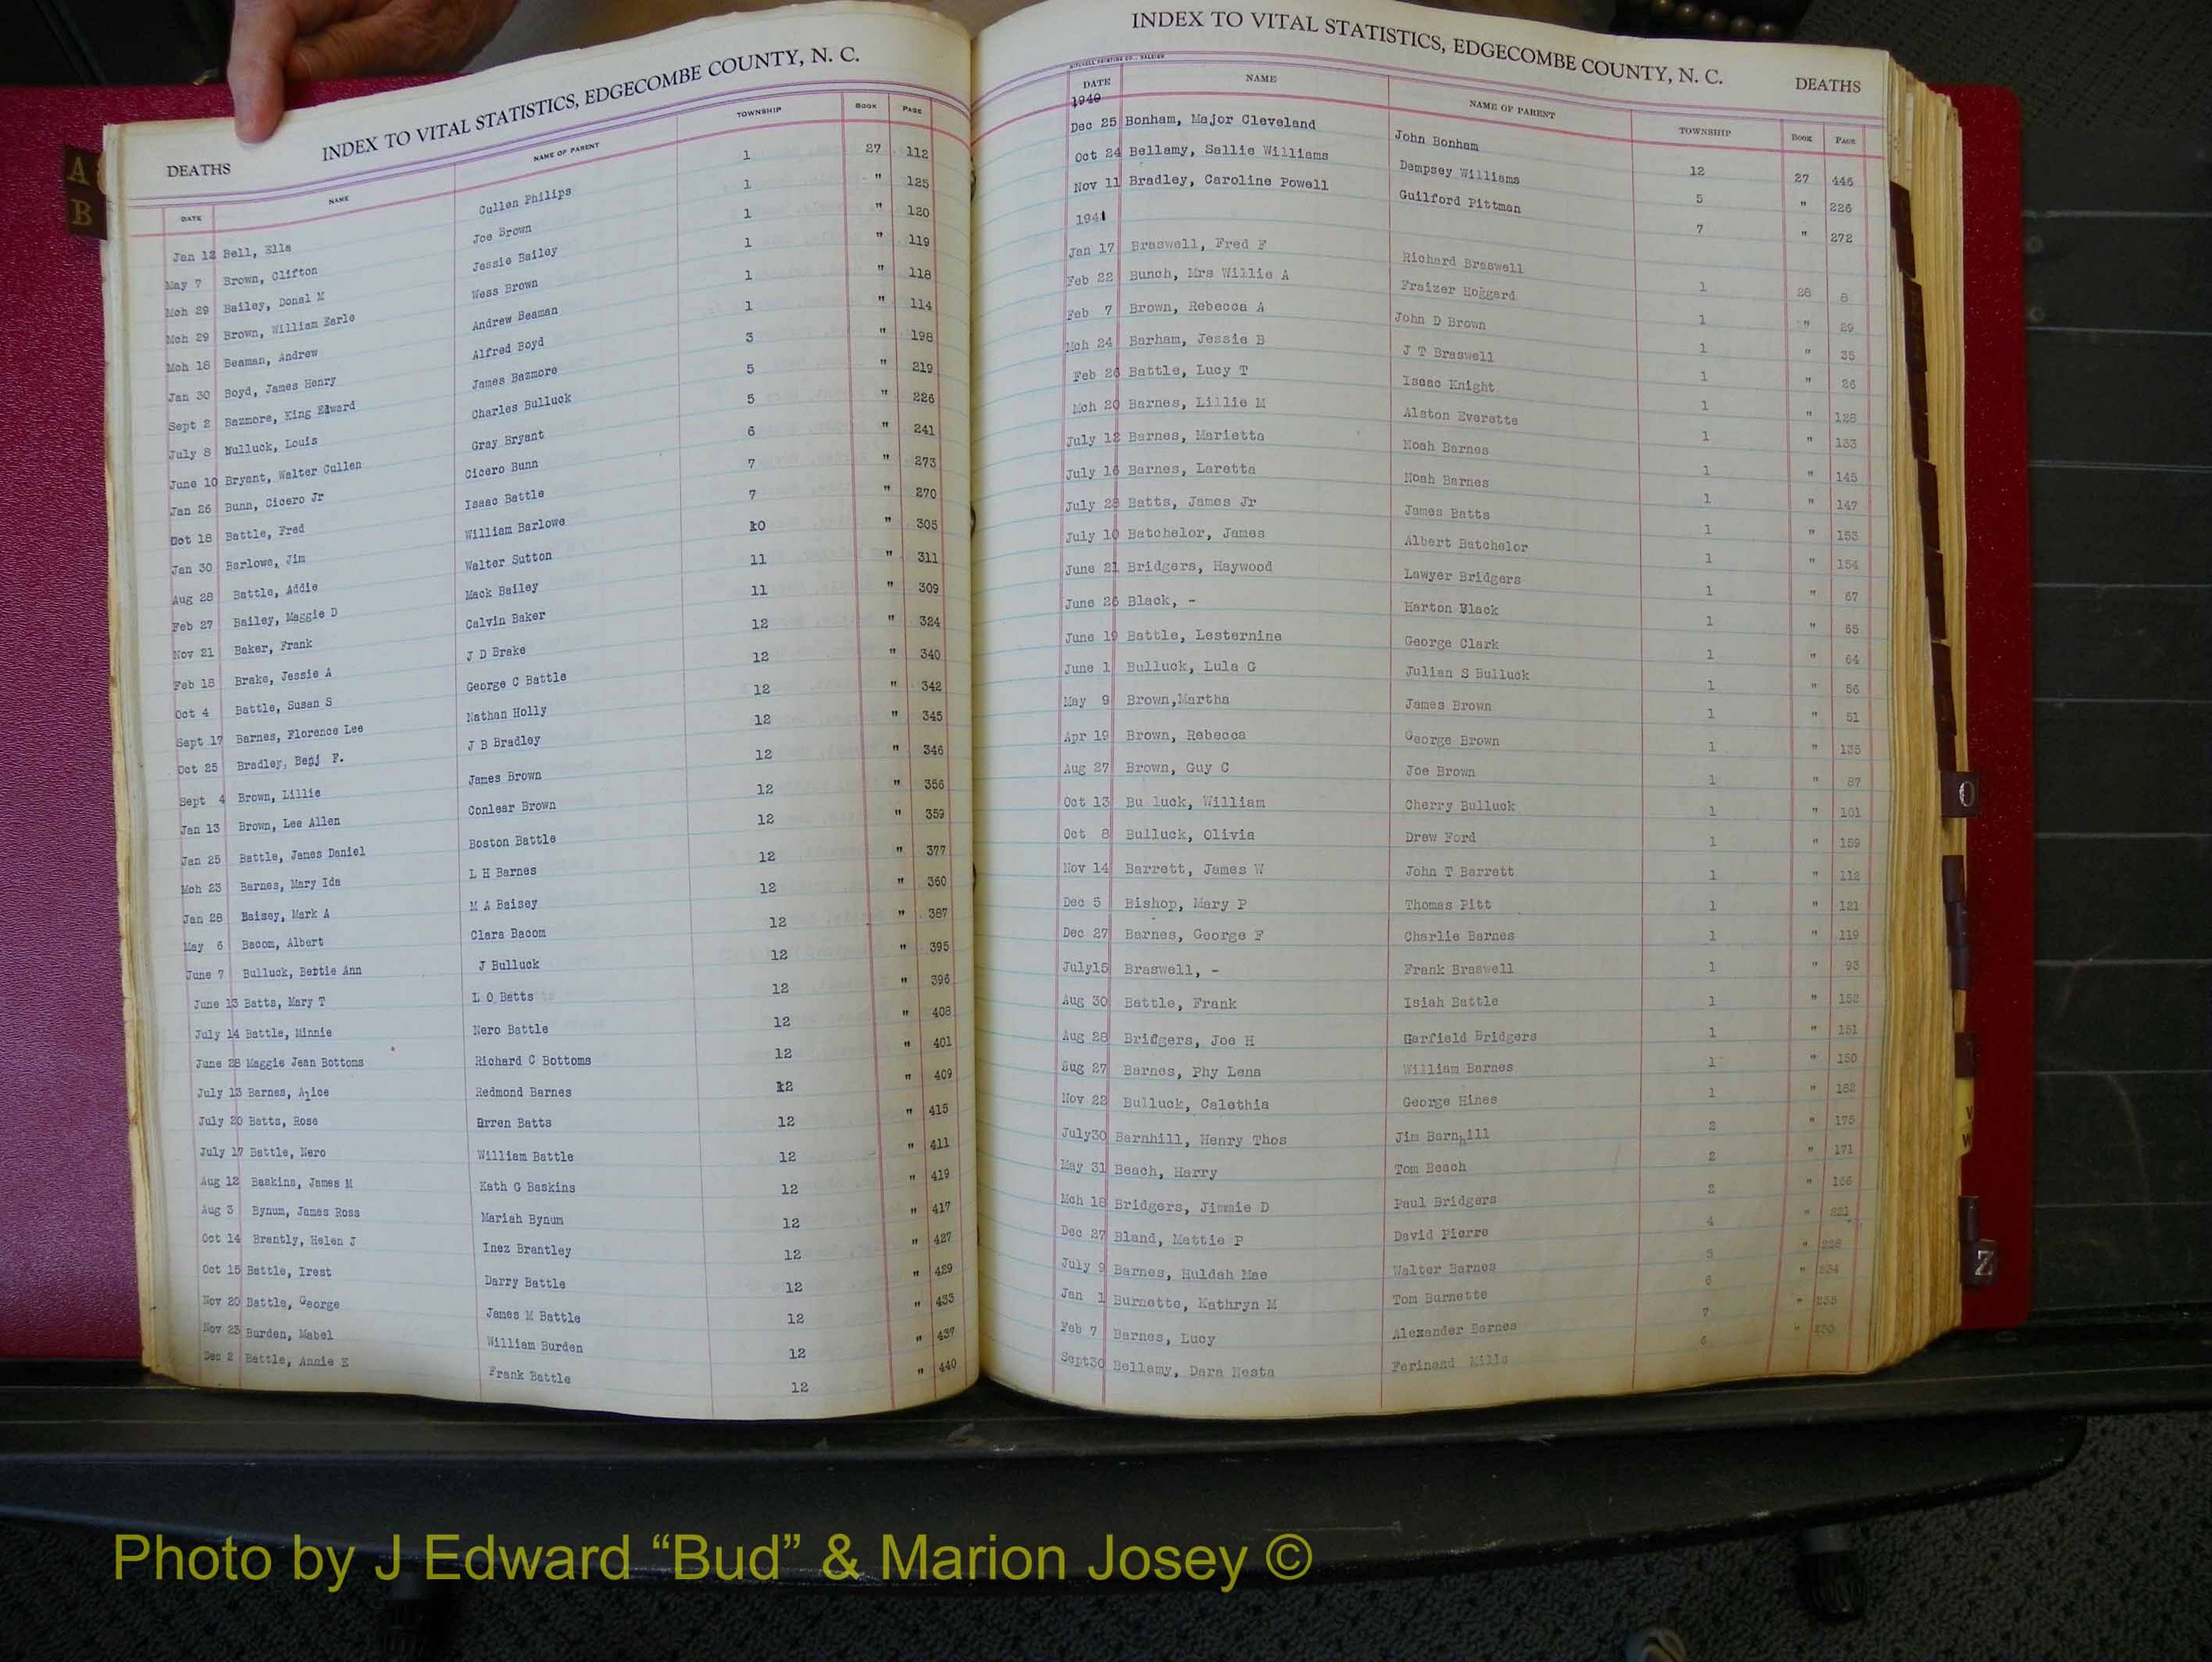 A
B
INDEX TO VITAL STATISTICS, EDGECOMBE COUNTY, N. C.
DEATHS
DATE NAME NAME OF PARENT TOWNSHIP BOOK PAGE
Jan 12 Bell, Ella Cullen Philips 1 27 112
May 7 Brown, Clifton Joe Brown 1 " 125
Mch 29 Bailey, Donal M Jessie Bailey 1 " 120
Mch 29 Brown, William Earle Wess Brown 1 " 119
Mch 18 Beaman, Andrew Andrew Beaman 1 " 118
Jan 30 Boyd, James Henry Alfred Boyd 1 " 114
Sept 2 Bazmore, King Edward James Bazmore 3 " 198
July 8 Bulluck, Louis Charles Bulluck 5 " 219
June 10 Bryant, Walter Cullen Gray Bryant 5 " 226
Jan 26 Bunn, Cicero Jr Cicero Bunn 6 " 241
Oct 18 Battle, Fred Isaac Battle 7 " 273
Jan 30 Barlowe, Jim William Barlowe 7 " 270
Aug 28 Battle, Addie Walter Sutton 10 " 305
Feb 27 Bailey, Maggie D Mack Bailey 11 " 311
Nov 21 Baker, Frank Calvin Baker 11 " 309
Feb 18 Brake, Jessie A J D Brake 12 " 324
Oct 4 Battle, Susan S George C Battle 12 " 340
Sept 17 Barnes, Florence Lee Nathan Holly 12 " 342
Oct 25 Bradley, Benj F. J B Bradley 12 " 345
Sept 4 Brown, Lillie James Brown 12 " 346
Jan 13 Brown, Lee Allen Conlear Brown 12 " 356
Jan 25 Battle, James Daniel Boston Battle 12 " 359
Mch 23 Barnes, Mary Ida L H Barnes 12 " 377
Jan 28 Baisey, Mark A M A Baisey 12 " 360
May 6 Bacom, Albert Clara Bacom 12 " 387
June 7 Bulluck, Bettie Ann J Bulluck 12 " 395
June 13 Batts, Mary T L O Batts 12 " 396
July 14 Battle, Minnie Nero Battle 12 " 408
June 28 Maggie Jean Bottoms Richard C Bottoms 12 " 401
July 13 Barnes, Alice Redmond Barnes 12 " 409
July 20 Batts, Rose Brren Batts 12 " 415
July 17 Battle, Nero William Battle 12 " 411
Aug 12 Baskins, James M Kath G Baskins 12 " 419
Aug 3 Bynum, James Ross Mariah Bynum 12 " 417
Oct 14 Brantly, Helen J Inez Brantley 12 " 427
Oct 15 Battle, Irest Darry Battle 12 " 429
Nov 20 Battle, George James M Battle 12 " 433
Nov 23 Burden, Mabel William Burden 12 " 437
Dec 2 Battle, Annie E Frank Battle 12 " 440
INDEX TO VITAL STATISTICS, EDGECOMBE COUNTY, N. C.
DEATHS
MITCHELL PRINTING CO., RALEIGH
DATE NAME NAME OF PARENT TOWNSHIP BOOK PAGE
1940
Dec 25 Bonham, Major Cleveland John Bonham 12 27 446
Oct 24 Bellamy, Sallie Williams Dempsey Williams 5 " 226
Nov 11 Bradley, Caroline Powell Guilford Pittman 7 " 272
1941
Jan 17 Braswell, Fred F Richard Braswell 1 28 8
Feb 22 Bunch, Mrs Willie A Fraizer Hoggard 1 " 29
Feb 7 Brown, Rebecca A John D Brown 1 " 35
Mch 24 Barham, Jessie B J T Braswell 1 " 26
Feb 26 Battle, Lucy T Isaac Knight 1 " 128
Mch 20 Barnes, Lillie M Alston Everette 1 " 133
July 12 Barnes, Marietta Noah Barnes 1 " 145
July 16 Barnes, Laretta Noah Barnes 1 " 147
July 28 Batts, James Jr James Batts 1 " 153
July 10 Batchelor, James Albert Batchelor 1 " 154
June 21 Bridgers, Haywood Lawyer Bridgers 1 " 67
June 26 Black, - Harton Black 1 " 65
June 19 Battle, Lesternine George Clark 1 " 64
June 1 Bulluck, Lula G Julian S Bulluck 1 " 56
May 9 Brown,Martha James Brown 1 " 51
Apr 19 Brown, Rebecca George Brown 1 " 135
Aug 27 Brown, Guy C Joe Brown 1 " 87
Oct 13 Bu luck, William Cherry Bulluck 1 " 101
Oct 8 Bulluck, Olivia Drew Ford 1 " 159
Nov 14 Barrett, James W John T Barrett 1 " 112
Dec 5 Bishop, Mary P Thomas Pitt 1 " 121
Dec 27 Barnes, George F Charlie Barnes 1 " 119
July15 Braswell, - Frank Braswell 1 " 93
Aug 30 Battle, Frank Isiah Battle 1 " 152
Aug 28 Bridgers, Joe H Garfield Bridgers 1 " 151
Aug 27 Barnes, Phy Lena William Barnes 1 " 150
Nov 22 Bulluck, Calethia George Hines 1 " 162
July30 Barnhill, Henry Thos Jim Barnhill 2 " 175
May 31 Beach, Harry Tom Beach 2 " 171
Mch 18 Bridgers, Jimmie D Paul Bridgers 2 " 166
Dec 27 Bland, Mattie P David Pierre 4 " 221
July 9 Barnes, Huldah Mae Walter Barnes 5 "
Jan 1 Burnette, Kathryn M Tom Burnette 6 "
Feb 7 Barnes, Lucy Alexander Barnes 7 "
Sept30 Bellamy, Dara Nesta Ferinand Mills 6 "
O
V
W
Z
Photo by J Edward “Bud” & Marion Josey ©